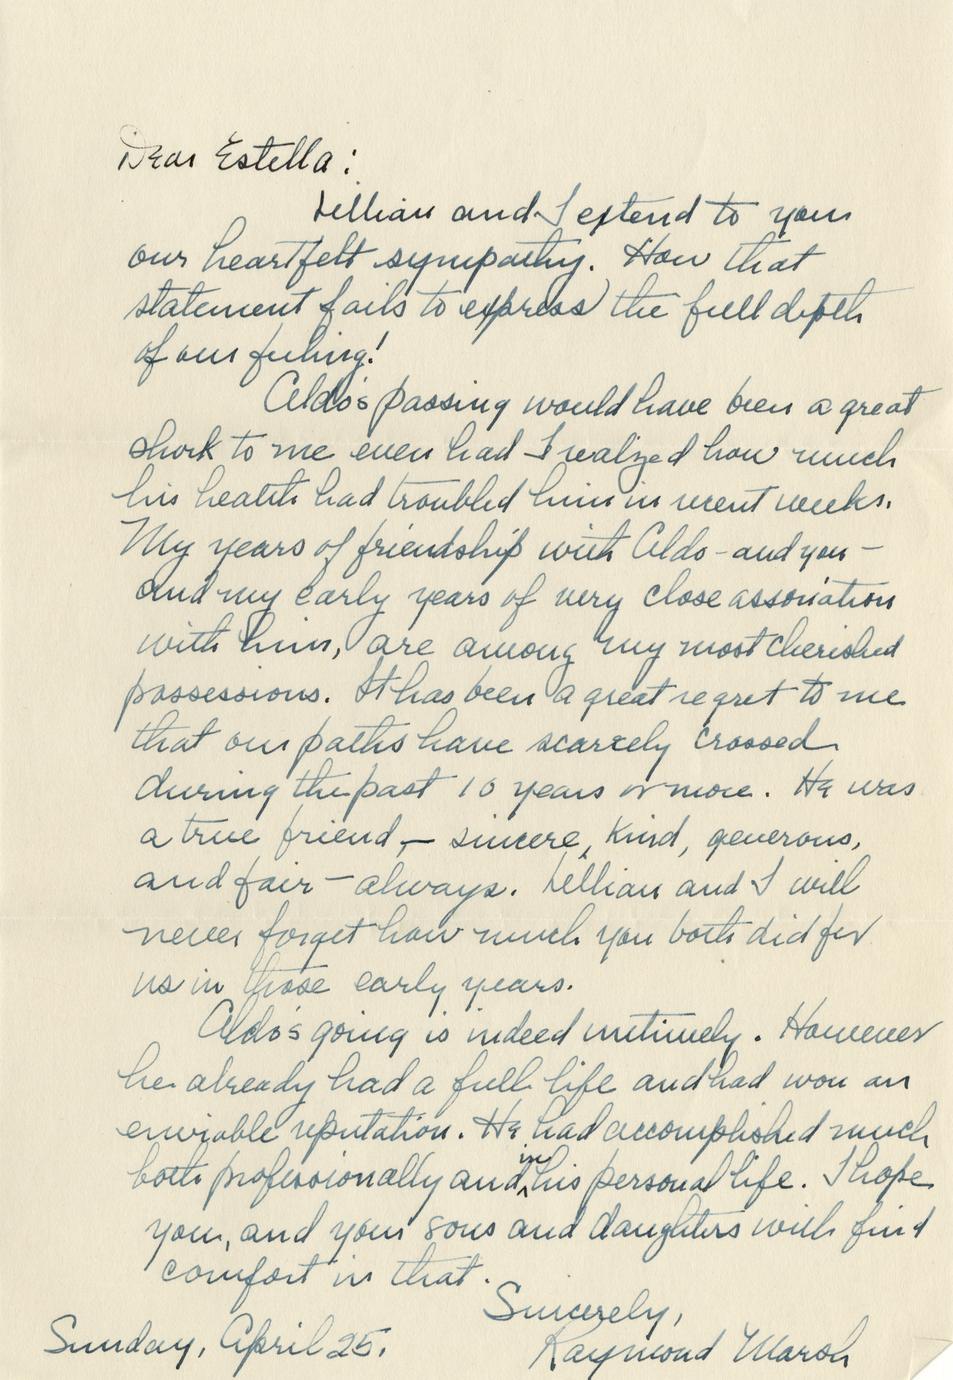 Dear Estella:
Lillian and I extend to you
our heartfelt sympathy. How that
statement fails to express the full depth
of our feeling!
Aldo's passing would have been a great
shock to me even had I realized how much
his health had troubled him in recent weeks.
My years of friendship with Aldo - and you -
and my early years of very close association
with him, are among my most cherished
possessions. It has been a great regret to me
that our paths have scarcely crossed
during the past 10 years or more. He was
a true friend, — sincere, kind, generous,
and fair — always. Lillian and I will
never forget how much you both did for
us in those early years.
Aldo's going is indeed untimely. However
he already had a full life and had won an
enviable reputation. He had accomplished much
both professionally and in his personal life. I hope
you, and your sons and daughters will find
comfort in that.
Sincerely,
Sunday, April 25. Raymond Marsh